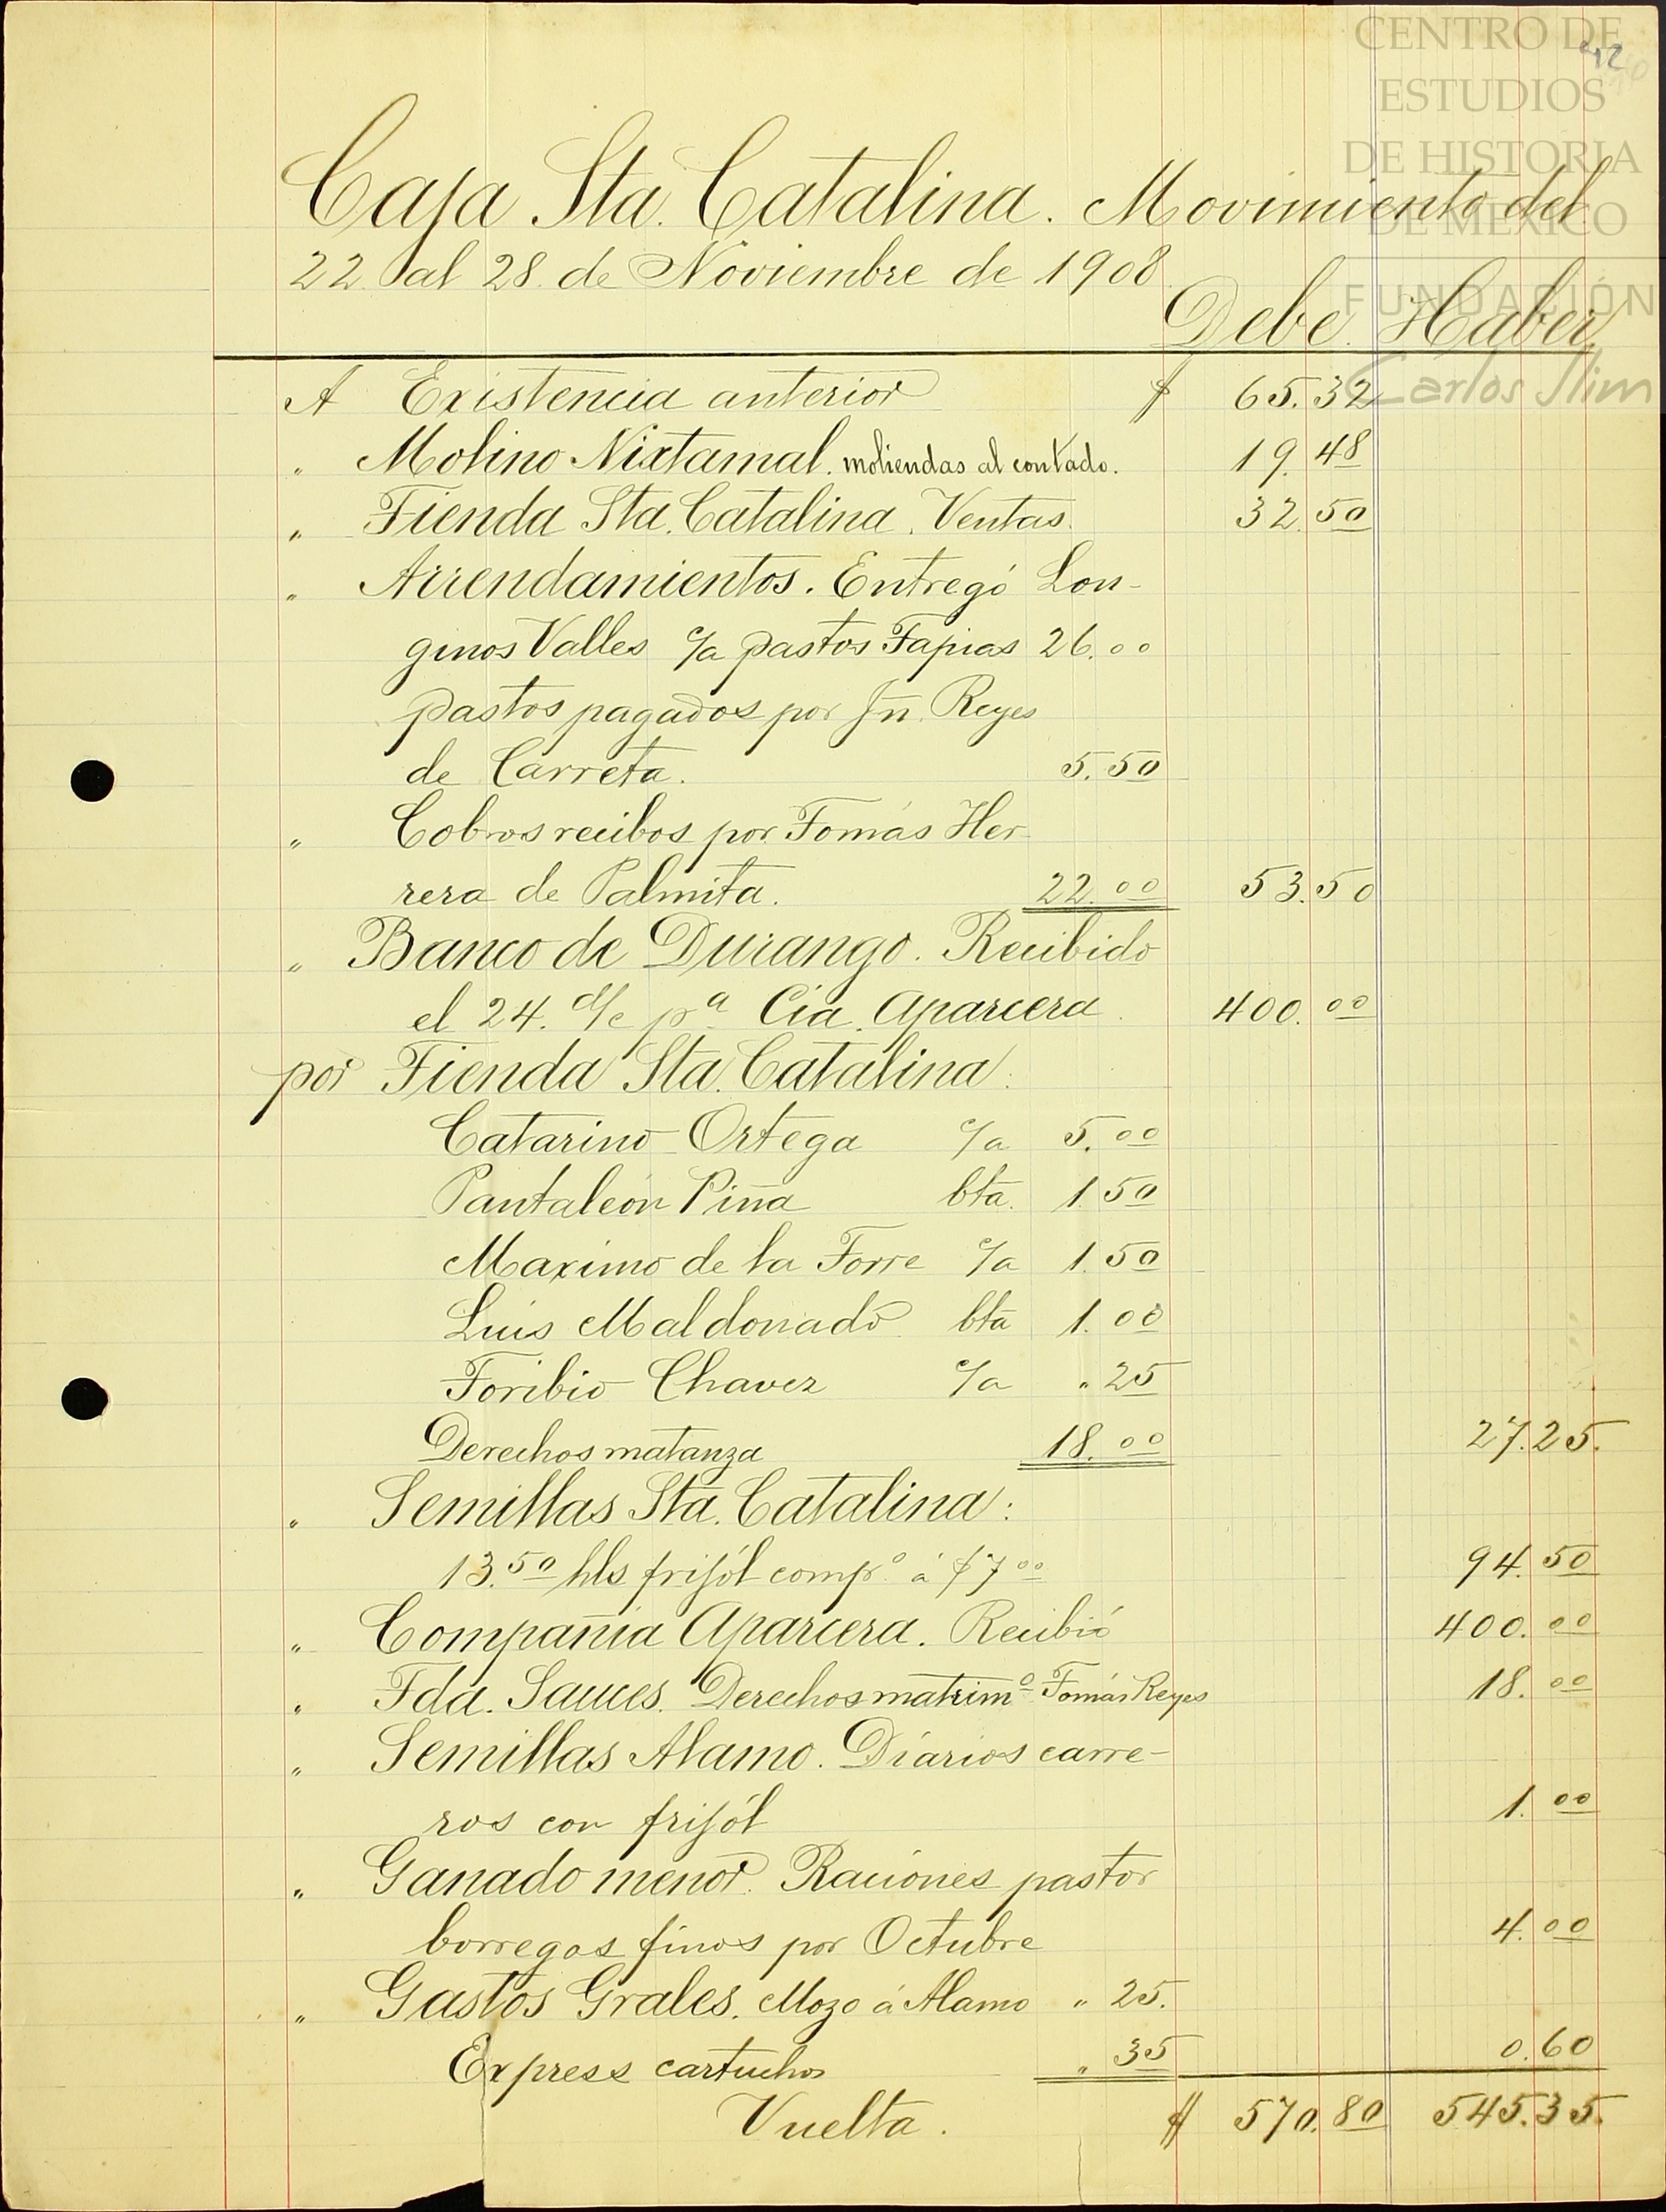 CENTRO DE
ESTUDIOS
DE HISTORIA
DE MÉXICO
FUNDACIÓN
Carlos Slim
42
Caja Sta. Catalina. Movimiento del
22 al 28 de Noviembre de 1908
Debe. Haber
A Existencia anterior $ 65.32
" Molino Nixtamal. moliendas al contado. 19.48
" Tienda Sta. Catalina. Ventas. 32.50
" Arrendamientos. Entregó Lon-
ginos Valles c/a pastos Tapias 26.00
pastos pagados por Jn. Reyes
de Carreta. 5.50
" Cobros recibos por Tomás Her
rera de Palmita. 22.00 53.50
" Banco de Durango. Recibido
el 24. d/c pa Cia. Aparcera 400.00
por Tienda Sta. Catalina:
Catarino Ortega c/a 5.00
Pantaleón Piña bta. 1.50
Maximo de la Torre c/a 1.50
Luis Maldonado bta 1.00
Toribio Chavez c/a " 25
Derechos matanza 18.00 27.25.
" Semillas Sta. Catalina:
13.50 hls frijól compo á $7 00 94.50
" Compañia Aparcera. Recibió 400.00
" Tda. Sauces. Derechos matrimo Tomás Reyes 18.00
" Semillas Alamo. Diarios carre-
ros con frijól 1.00
" Ganado menor. Raciones pastor
borregos finos por Octubre 4.00
" Gastos Grales. Mozo á Alamo " 25.
Express cartuchos " 35 0.60
Vuelta. $ 570.80 545.35.